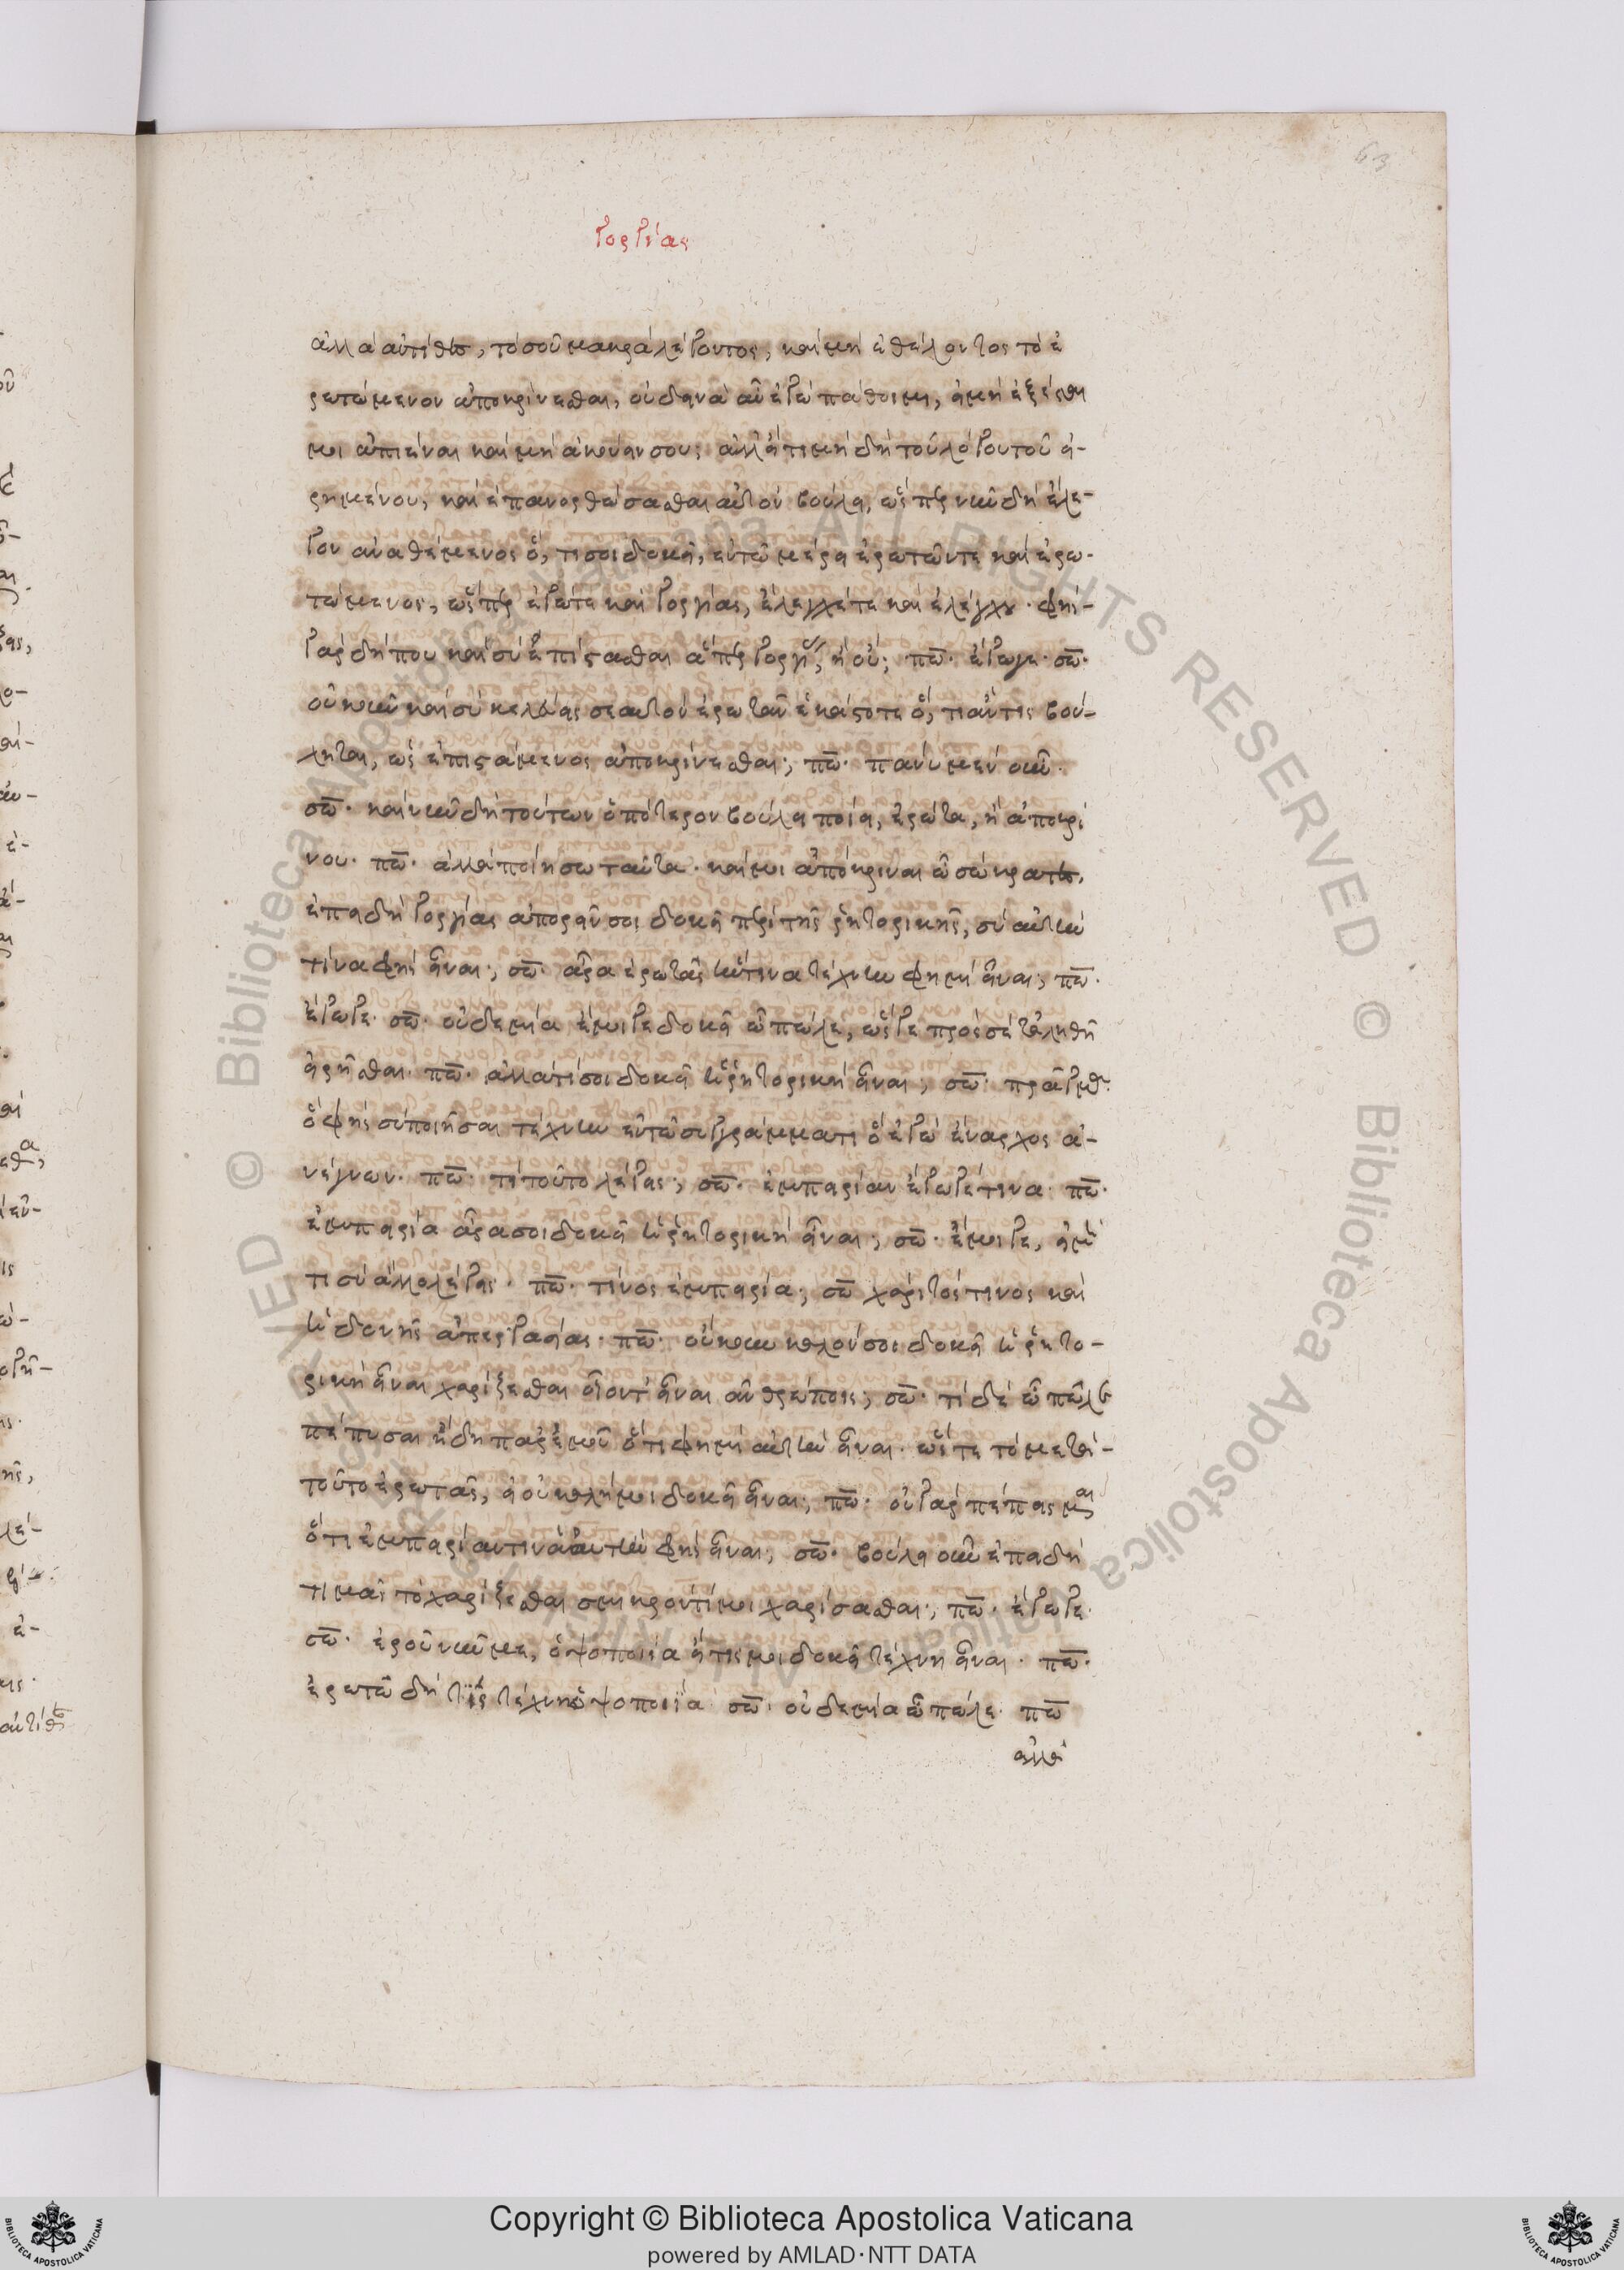 63
γοργίας
ἀλλὰ ἀντίθες, τὸ σοῦ μακρὰ λέγοντος, καὶ μὴ ἐθέλοντος τὸ ἐ
ρωτώμενον ἀποκρίνεσθαι, οὐ δεινὰ ἂν ἐγὼ πάθοιμι, εἰ μὴ ἐξέσται
μοι ἀπιέναι καὶ μὴ ἀκούειν σου; ἀλλ' εἴ τι κήδῃ τοῦ λόγου τοῦ εἰ-
ρημένου, καὶ ἐπανορθώσασθαι αὐτὸν βούλει, ὥσπερ νῦν δὴ ἔλε-
γον ἀναθέμενος ὅ, τι σοι δοκεῖ, ἐν τῷ μέρει ἐρωτῶν τε καὶ ἐρω-
τώμενος, ὥσπερ ἐγώ τε καὶ γοργίας, ἔλεγχέ τε καὶ ἐλέγχου. φὴς
γὰρ δήπου καὶ σὺ ἐπίστασθαι ἅπερ γοργίας, ἢ οὔ; πῶ. ἔγωγε. σω.
οὐκοῦν καὶ σὺ κελεύεις σεαυτὸν ἐρωτᾶν ἑκάστοτε ὅ, τι ἄν τις βού-
ληται, ὡς ἐπιστάμενος ἀποκρίνεσθαι; πω. πάνυ μὲν οὖν.
σω. καὶ νῦν δὴ τούτων ὁπότερον βούλει ποίει, ἐρώτα, ἢ ἀποκρί
νου. πω. ἀλλὰ ποιήσω ταῦτα. καί μοι ἀπόκριναι ὦ σώκρατες,
ἐπειδὴ γοργίας ἀπορεῖν σοι δοκεῖ περὶ τῆς ῥητορικῆς, σὺ αὐτὴν
τίνα φὴς εἶναι; σω. ἆρα ἐρωτᾷς ἥντινα τέχνην φημὶ εἶναι; πω.
ἔγωγε. σω. οὐδεμία ἔμοιγε δοκεῖ ὦ πῶλε, ὥς γε πρὸς σὲ τἀληθῆ
εἰρῆσθαι. πω. ἀλλὰ τί σοι δοκεῖ ἡ ῥητορικὴ εἶναι; σω. πρᾶγμα
ὃ φὴς σὺ ποιῆσαι τέχνην ἐν τῷ συγγράμματι ὃ ἐγὼ ἔναρχος ἀ-
νέγνων. πω. τί τοῦτο λέγεις; σω. ἐμπειρίαν ἔγωγέ τινα. πω.
ἐμπειρία ἆρα σοι δοκεῖ ἡ ῥητορικὴ εἶναι; σω. ἔμοιγε, εἰ μή
τι σὺ ἄλλο λέγεις. πω. τίνος ἐμπειρία; σω χάριτός τινος καὶ
ἡδονῆς ἀπεργασίας. πω. οὐκοῦν καλόν σοι δοκεῖ ἡ ῥητο-
ρικὴ εἶναι χαρίζεσθαι οἷόντ' εἶναι ἀνθρώποις; σω. τί δὲ ὦ πῶλε
πέπυσαι ἤδη παρ' ἐμοῦ ὅ τι φημὶ αὐτὴν εἶναι. ὥστε τὸ μετὰ-
τοῦτο ἐρωτᾷς, εἰ οὐ καλή μοι δοκεῖ εἶναι; πω. οὐ γὰρ πέπεισμαι
ὅτι ἐμπειρίαν τινὰ αὐτὴν φὴς εἶναι; σω. βούλει οὖν ἐπειδὴ
τιμᾷς τὸ χαρίζεσθαι σμικρόν τί μοι χαρίσασθαι; πω. ἔγωγε.
σω. ἐροῦ νῦν με, ὀψοποιία ἥτις μοι δοκεῖ τέχνη εἶναι. πω.
ἐρωτῶ δὴ τίς τέχνη ὀψοποιΐα σω. οὐδεμία ὦ πῶλε. πω
ἀλλὰ